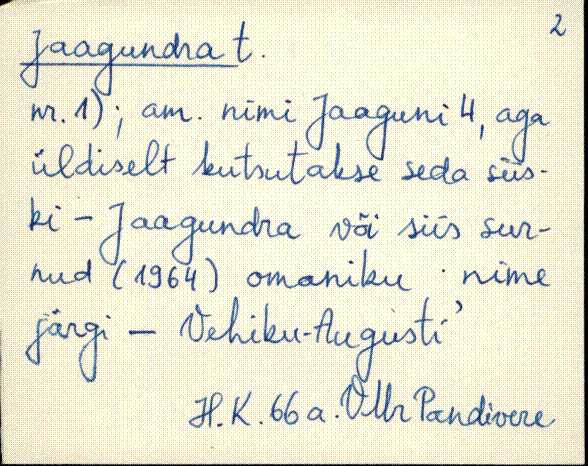 2
Jaagundra t.
nr. 1); am. nimi Jaaguni 4, aga
üldiselt kutsutakse seda siis-
ki - Jaagundra või siis sur-
nud (1964) omaniku nime
järgi - Vehiku-Augusti'
H.K. 66 a. VMr Pandivere